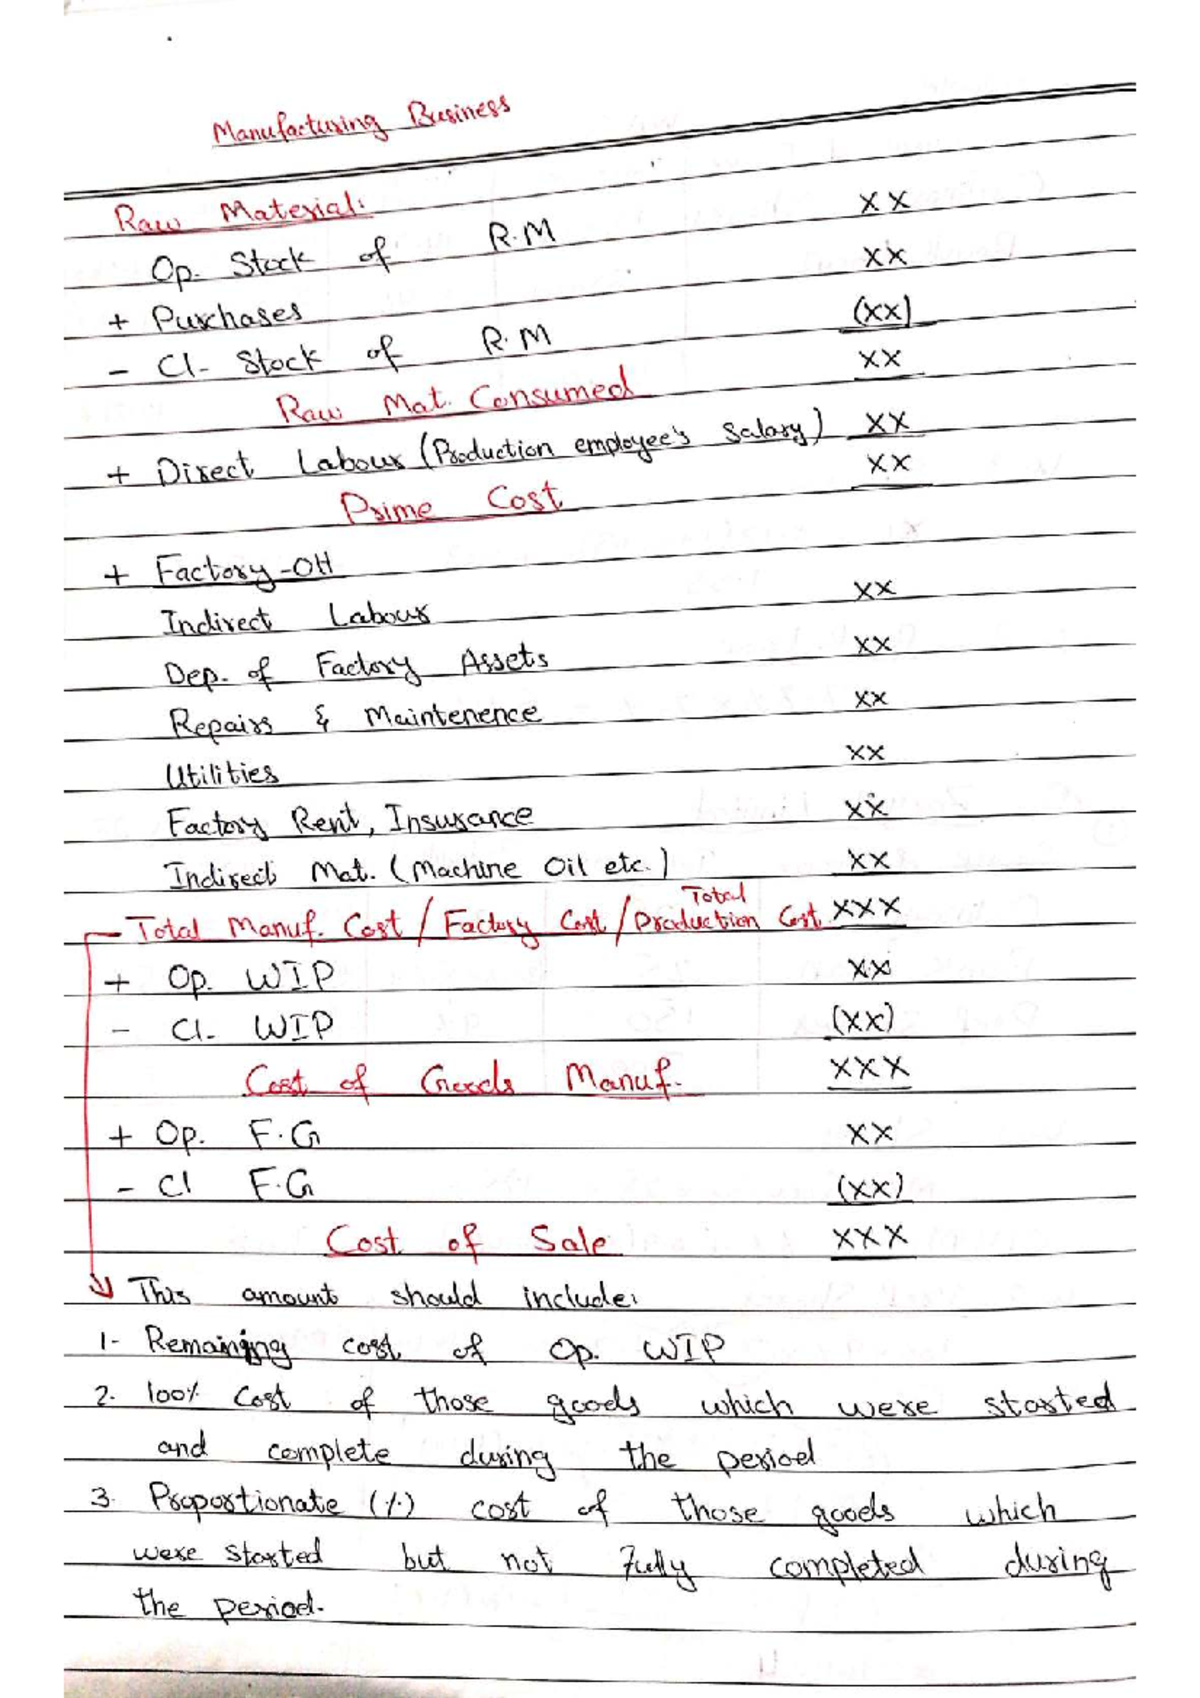 Manufacturing Business
Raw Material:
Op. Stock of R.M XX
+ Purchases XX
- Cl. Stock of R.M (XX)
Raw Mat. Consumed XX
+ Direct Labour (Production employee's Salary) XX
Prime Cost XX
+ Factory-OH
Indirect Labour XX
Dep. of Factory Assets XX
Repairs & Maintenence XX
Utilities XX
Factory Rent, Insurance XX
Indirect Mat. (Machine Oil etc.) XX
Total Manuf. Cost / Factory Cost / Total Production Cost XXX
+ Op. WIP XX
- Cl. WIP (XX)
Cost of Goods Manuf. XXX
+ Op. F.G XX
- Cl F.G (XX)
Cost of Sale XXX
This amount should include:
1- Remaining cost of Op. WIP
2. 100% Cost of those goods which were started
and complete during the period
3. Proportionate (%) cost of those goods which
were started but not fully completed during
the period.